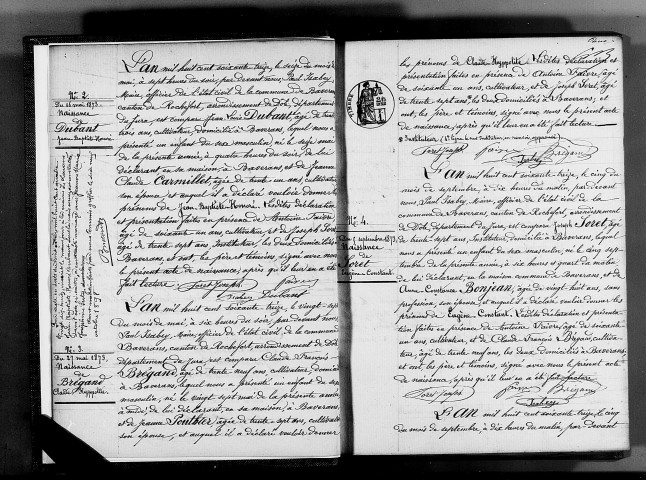 N°. 2.
Du 16 mai 1873.
Naissance
de
Dubant
Jean Baptiste Henri
L'An mil huit cent soixante treize, le seize du mois de
mai, à sept heures du soir, par devant nous, Paul Isabey
Maire, officier de l'état civil de la commune de Baverans
canton de Rochefort, arrondissement de Dôle, département
du Jura, est comparu Jean Louis Dubant, âgé de trente
trois ans, cultivateur, domicilié à Baverans, lequel nous a
présenté un enfant du sexe masculin, né le sept mai
de la présente année, à quatre heures du soir, de lui
déclarant en sa maison, à Baverans, et de Jeanne
Claude Carmillet, âgée de trente un ans, cultivateur
son épouse, et auquel il a déclaré vouloir donner les
prénoms de Jean Baptiste Henri. Lesdites déclaration
et présentation faites en présence de Antoine Faivre
âgé de soixante un ans, cultivateur, et de Joseph Foret
âgé de trente sept ans, Instituteur, les deux domiciliés
à Baverans, et ont, les père et témoins, signé avec nous
le présent acte de naissance, après qu'il leur en a été
fait lecture. Foret Joseph Faivre
Isabey Dubant
N°. 3.
Du 27 mai 1873.
Naissance
de
Brégand
Claude Hyppolite
L'An mil huit cent soixante treize, le vingt-sept
du mois de mai, à six heures du soir, par devant nous,
Paul Isabey, Maire, officier de l'état civil de la commune
de Baverans, canton de Rochefort, arrondissement de Dôle
département du Jura, est comparu Claude François
Brégand, âgé de trente-neuf ans, cultivateur, domicilié
à Baverans, lequel nous a présenté un enfant du sexe
masculin, né le vingt sept mai de la présente année,
à midi, de lui, déclarant, en sa maison, à Baverans,
et de Jeanne Ponthier, âgée de trente-sept ans, cultivateur
son épouse, et auquel il a déclaré vouloir donner
les prénoms de Claude Hyppolite. Lesdites déclaration et
présentation faites en présence de Antoine Faivre, âgé
de soixante un ans, cultivateur, et de Joseph Foret, âgé
de trente sept ans, les deux domiciliés à Baverans; et
ont, les père et témoins, signé avec nous le présent acte
de naissance, après qu'il leur en a été fait lecture
Foret Joseph Faivre Brégand
Isabey
N°. 4.
Du 5 septembre 1873.
Naissance
de
Foret
Eugène Constant.
L'An mil huit cent soixante treize, le cinq du
mois de septembre, à dix heures du matin, par devant
nous, Paul Isabey, Maire, officier de l'état civil de la
commune de Baverans, canton de Rochefort, arrondissement
de Dôle, département du Jura, est comparu Joseph Foret,
âgé de trente-sept ans, Instituteur, domicilié à Baverans, lequel nous a
présenté un enfant du sexe masculin, né le cinq sept
embre de la présente année, à six heures et quart du matin
de lui déclarant, en la maison commune de Baverans, et de
Anne Constance Bonjean, âgée de vingt-huit ans, sans
profession, son épouse, et auquel il a déclaré vouloir donner les
prénoms de Eugène Constant. Lesdites déclaration et présen-
tation faites en présence de Antoine Faivre, âgé de soixante
un ans, cultivateur, et de Claude François Brégand, cultiva-
teur, âgé de trente-neuf ans, les deux domiciliés à Baverans,
et ont, les père et témoins, signé avec nous le présent acte
de naissance, après qu'il leur en a été fait lecture
Foret Joseph Faivre Brégand
Isabey
L'An mil huit cent soixante treize, le cinq
du mois de septembre, à dix heures du matin, par devant